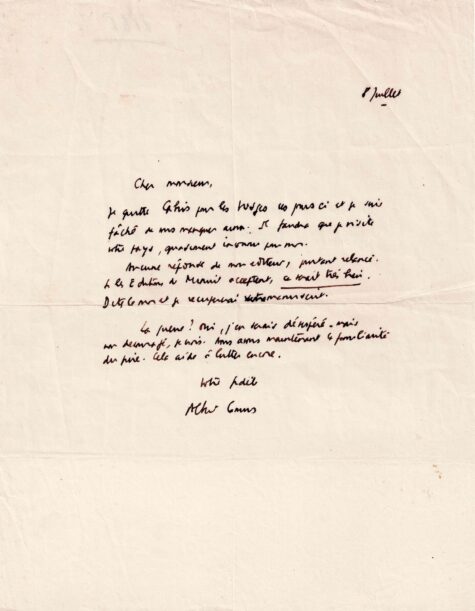 8 juillet
Cher monsieur,
Je quitte Cabris pour les Vosges ces jours ci et je suis
fâché de vous manquer aussi. Il faudra que je visite
votre pays, quasiment inconnu pour moi.
Aucune réponse de mon éditeur, pourtant relancé.
Si les Editions de Minuit acceptent, ce serait très bien.
Dites le moi et je récupérerai votre manuscrit.
La guerre ? Oui, j'en étais désespéré - mais
non découragé, je crois. Nous avons maintenant la familiarité
du pire. Cela aide à lutter encore.
Votre fidèle
Albert Camus